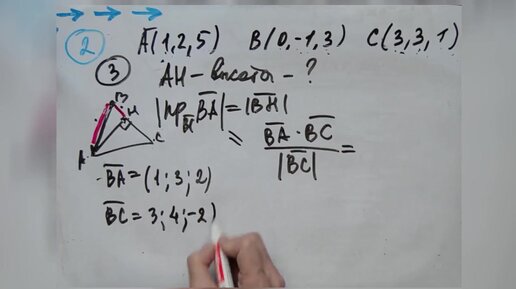 2 A(1,2,5) B(0,-1,3) C(3,3,1)
3 AH - высота - ?
|пр_H BA| = |BH|
= BA · BC / |BC| =
B
H
A
C
BA = (1; 3; 2)
BC = 3; 4; -2)